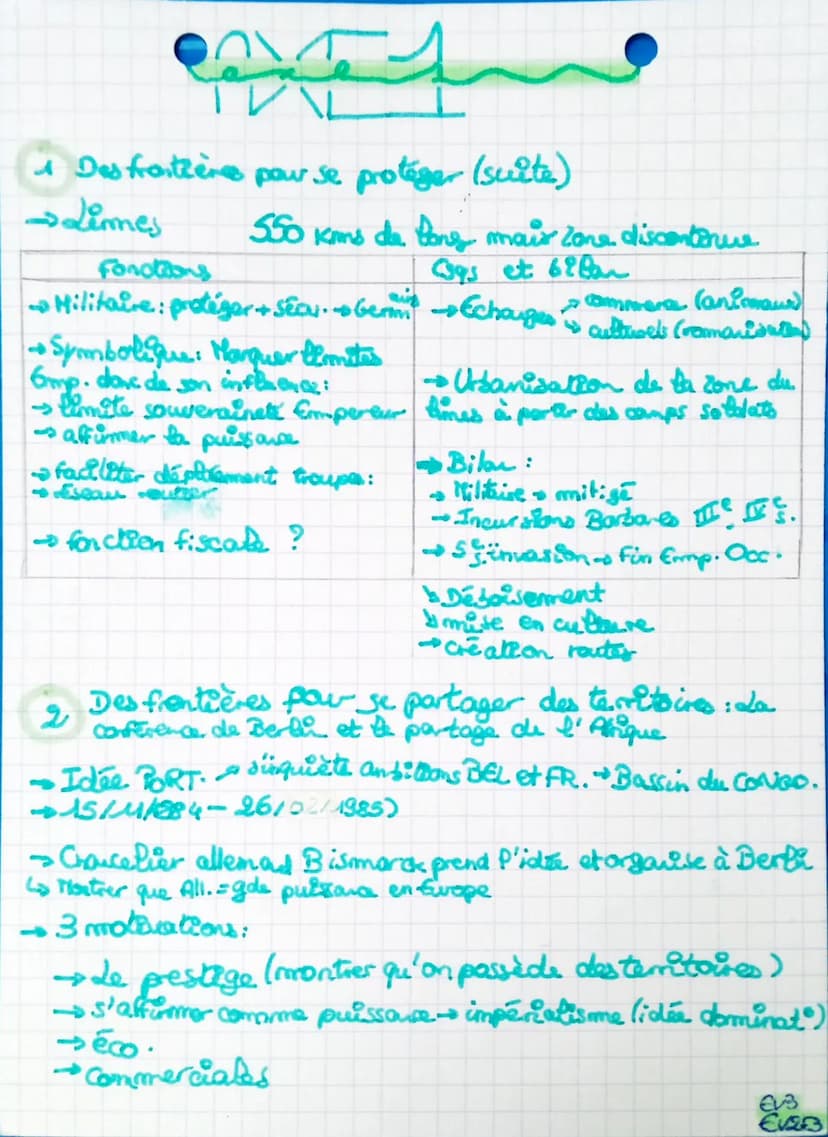 axe 1
1 Des frontières pour se protéger (suite)
→ Limes 550 Kms de long mais zone discontinue
Fonctions
Cqs et bilan
→ Militaire : protéger + sécu. → Germains
→ Symbolique : Marquer limites
Emp. donc de son influence :
→ limite souveraineté Empereur
→ affirmer la puissance
→ faciliter déploiement troupes :
→ réseau routier
→ fonction fiscale ?
→ Echanges ↗ commerce (animaux)
↘ culturels (romanisation)
→ Urbanisation de la zone du
limes à partir des camps soldats
→ Bilan :
→ Militaire → mitigé
→ Incursions Barbares IIIe, IVe s.
→ 5e s. invasion → Fin Emp. Occ.
↳ Déboisement
↳ mise en culture
→ création routes
2 Des frontières pour se partager des territoires : La
conférence de Berlin et le partage de l'Afrique
→ Idée PORT. ↗ s'inquiète ambitions BEL et FR. → Bassin du CONGO.
→ 15/11/1884 - 26/02/1985)
→ Chancelier allemand Bismarck prend l'idée et organise à Berlin
↳ Montrer que All. = gde puissance en Europe
→ 3 motivations :
→ Le prestige (montrer qu'on possède des territoires)
→ s'affirmer comme puissance → impérialisme (idée dominat°)
→ éco.
→ commerciales